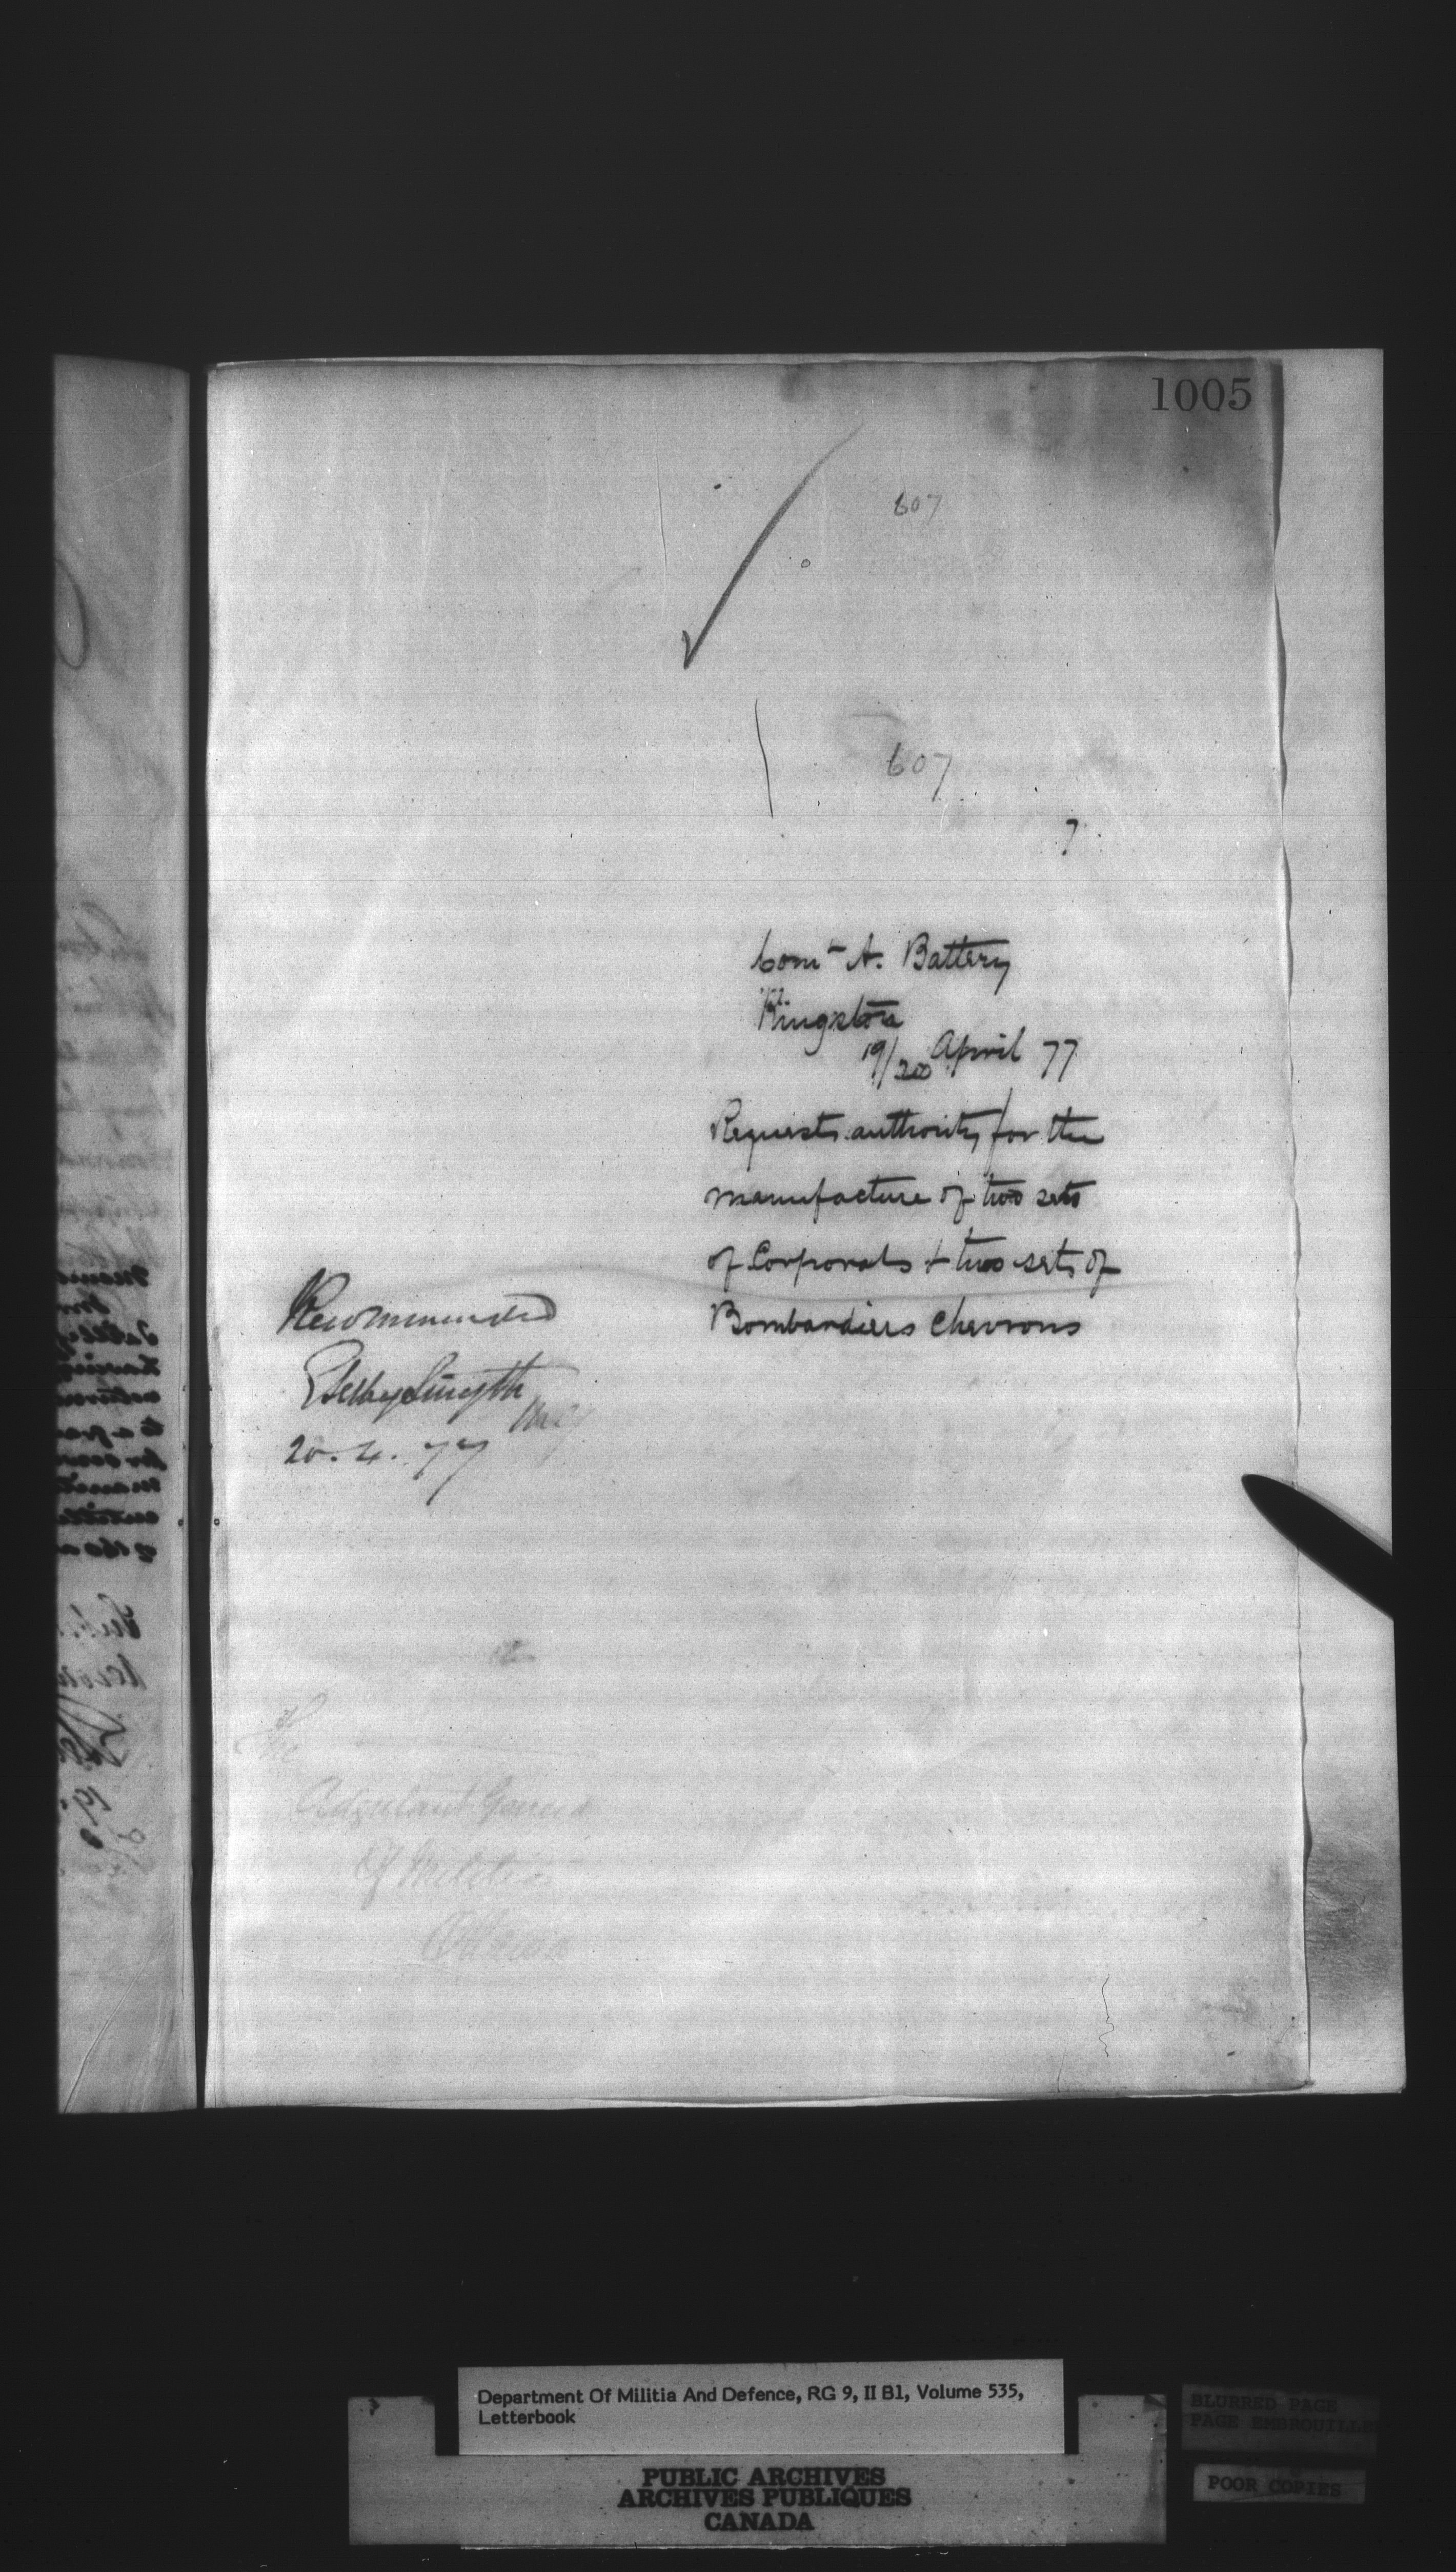 1005
607
607
7
Comt A. Battery
Kingston
19/20 April 77
Requests authority for the
manufacture of two sets
of Corporals + two sets of
Bombardiers Chevrons
Recommended
ESelbySmyth
20. 4. 77
The
Adjutant General
Of Militia
Ottawa
Department Of Militia And Defence, RG 9, II B1, Volume 535,
Letterbook
PUBLIC ARCHIVES
ARCHIVES PUBLIQUES
CANADA
BLURRED PAGE
PAGE EMBROUILLE
POOR COPIES